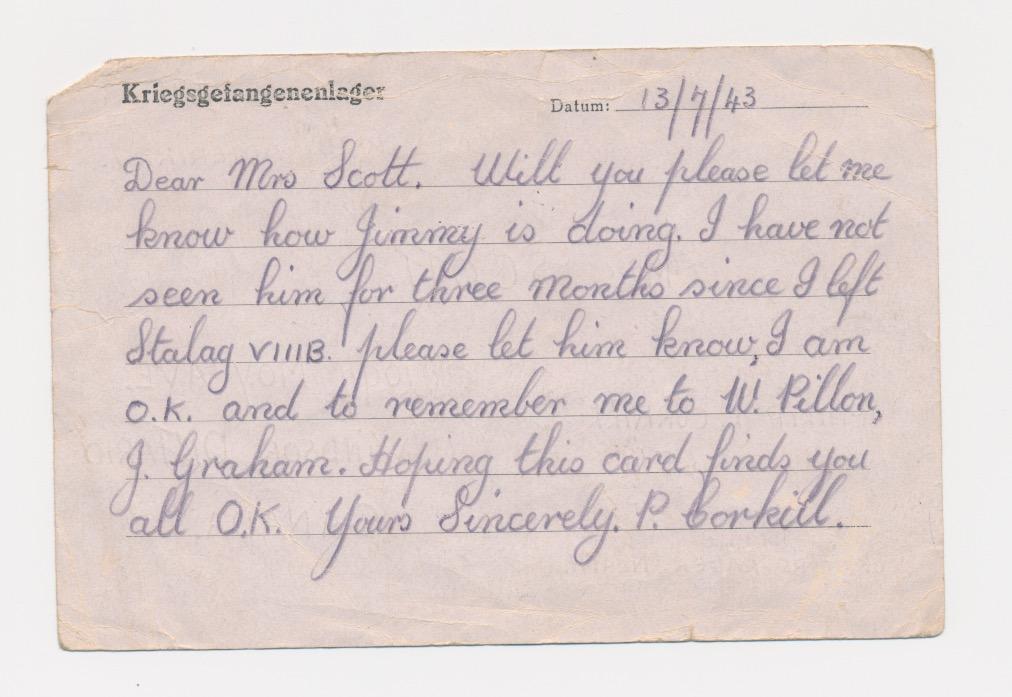 Kriegsgefangenenlager
Datum: 13/7/43
Dear Mrs Scott. Will you please let me
know how Jimmy is doing. I have not
seen him for three months since I left
Stalag VIIIB. please let him know, I am
O.K. and to remember me to W. Pillon,
J. Graham. Hoping this card finds you
all O.K. Yours Sincerely. P. Corkill.